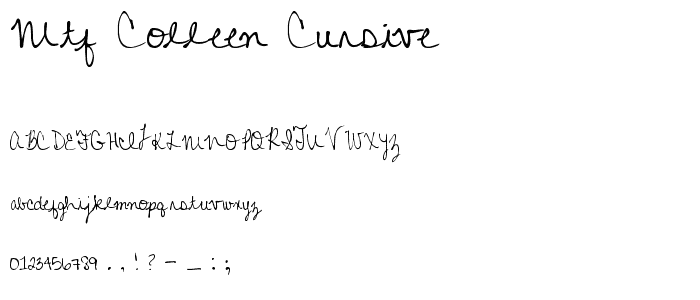 Mtf Colleen Cursive
ABCDEFGHIJKLMNOPQRSTUVWXYZ
abcdefghijklmnopqrstuvwxyz
0123456789 . , ! ? - _ : ;